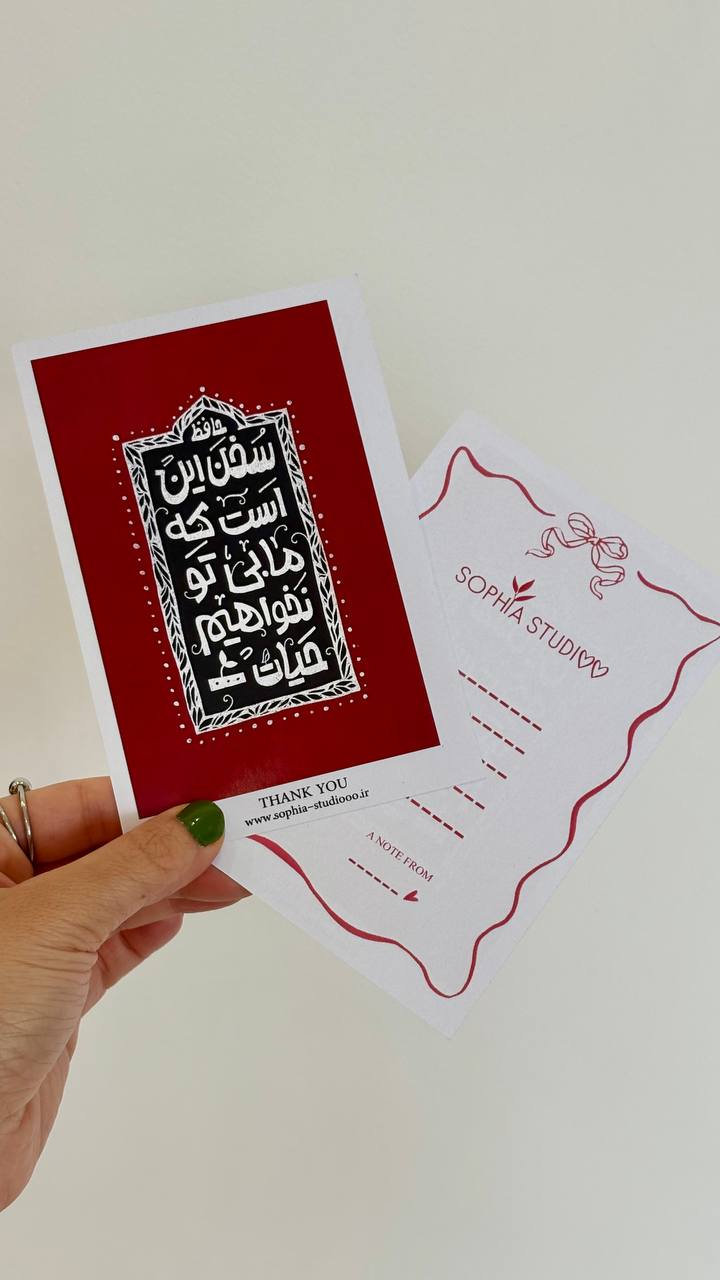 حافظ
سخن این
است که
ما بی تو
نخواهیم
حیات
THANK YOU
www.sophia-studiooo.ir
SOPHIA STUDIOO
A NOTE FROM